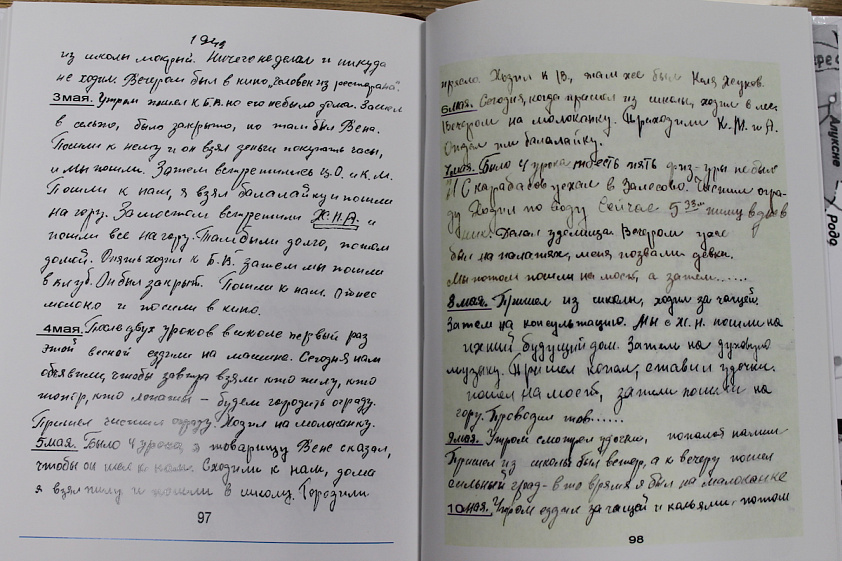 194
из школы мокрый. Ничего не делал и никуда
не ходил. Вечером был в кино „Человек из ресторана".
3мая. Утром пошел к Б.В. но его не было дома. Зашел
в сельпо, было закрыто, но там был Вена.
Пошли к нему и он взял деньги покупать часы,
и мы пошли. Затем встретились Ц.О. и К.М.
Пошли к нам, я взял балалайку и пошли
на гору. За мостом встретили Х.Н.А. и
пошли все на гору. Там были долго, потом
домой. Опять ходил к Б.В. Затем мы пошли
в клуб. Он был закрыт. Пошли к нам. Отнес
молоко и пошли в кино.
4мая. После двух уроков в школе первый раз
этой весной ездили на машине. Сегодня нам
объявили, чтобы завтра взяли кто пилу, кто
топор, кто лопаты – будем городить ограду.
Пришел чистил ограду. Ходил на молоканку.
5мая. Было 4 урока, я товарищу Вене сказал,
чтобы он шел к нам. Сходили к нам, дома
я взял пилу и пошли в школу. Городили
97
прясло. Ходил к В., там же был Коля
6мая. Сегодня, когда пришел из школы, ходил в лес.
Вечером на молоканку. Приходили К.М. и А.
Отдал им балалайку.
7мая. Было 4 урока пять физ-ры не был
уехал в Залесово. Чистил огра-
ду. Ходил по воду Сейчас 5 пишу в днев
ник. Делал удилища. Вечером уже
был на полатях, меня позвали девки.
Мы потом пошли на мост, а затем......
8мая. Пришел из школы, ходил за чащей.
Затем на консультацию. Мы с Х.Н. пошли на
ихний будущий дом. Затем на духовую
музыку. Пришел копал, ставил удочки.
пошел на мост, затем пошли на
гору. Проводил тов......
9мая. Утром смотрел удочки, попался налим
Пришел из школы был ветер, а к вечеру пошел
сильный град – в то время я был на молоканке
10мая. Утром ездил за чащей и кольями. потом
98
Алуксне
Рода